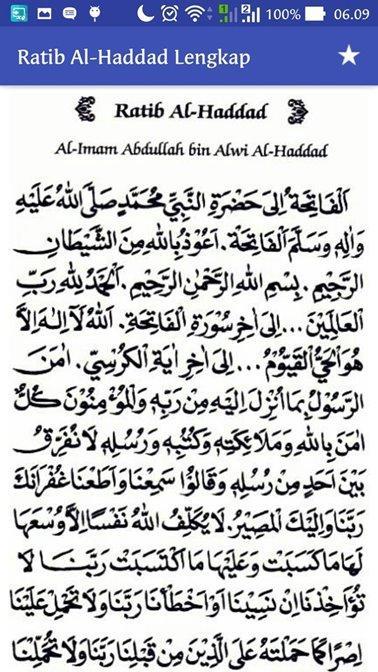 100% 06.09
Ratib Al-Haddad Lengkap
Ratib Al-Haddad
Al-Imam Abdullah bin Alwi Al-Haddad
اَلْفَاتِحَةُ اِلَى حَضْرَةِ النَّبِيِّ مُحَمَّدٍ صَلَّى اللهُ عَلَيْهِ
وَاٰلِهِ وَسَلَّمَ اَلْفَاتِحَةْ. اَعُوْذُ بِاللهِ مِنَ الشَّيْطَانِ
الرَّجِيْمِ. بِسْمِ اللهِ الرَّحْمٰنِ الرَّحِيْمِ. اَلْحَمْدُ لِلهِ رَبِّ
الْعَالَمِيْنَ... اِلَى اٰخِرِ سُوْرَةِ الْفَاتِحَةِ. اَللهُ لَآ اِلٰهَ اِلَّا
هُوَ الْحَيُّ الْقَيُّوْمُ... اِلَى اٰخِرِ اٰيَةِ الْكُرْسِيِّ. اٰمَنَ
الرَّسُوْلُ بِمَا اُنْزِلَ اِلَيْهِ مِنْ رَبِّهِ وَالْمُؤْمِنُوْنَ كُلٌّ
اٰمَنَ بِاللهِ وَمَلَائِكَتِهِ وَكُتُبِهِ وَرُسُلِهِ لَا نُفَرِّقُ
بَيْنَ اَحَدٍ مِنْ رُسُلِهِ وَقَالُوْا سَمِعْنَا وَاَطَعْنَا غُفْرَانَكَ
رَبَّنَا وَاِلَيْكَ الْمَصِيْرُ. لَا يُكَلِّفُ اللهُ نَفْسًا اِلَّا وُسْعَهَا
لَهَا مَا كَسَبَتْ وَعَلَيْهَا مَا اكْتَسَبَتْ رَبَّنَا لَا
تُؤَاخِذْنَا اِنْ نَسِيْنَا اَوْ اَخْطَأْنَا رَبَّنَا وَلَا تَحْمِلْ عَلَيْنَا
اِصْرًا كَمَا حَمَلْتَهُ عَلَى الَّذِيْنَ مِنْ قَبْلِنَا رَبَّنَا وَلَا تُحَمِّلْنَا